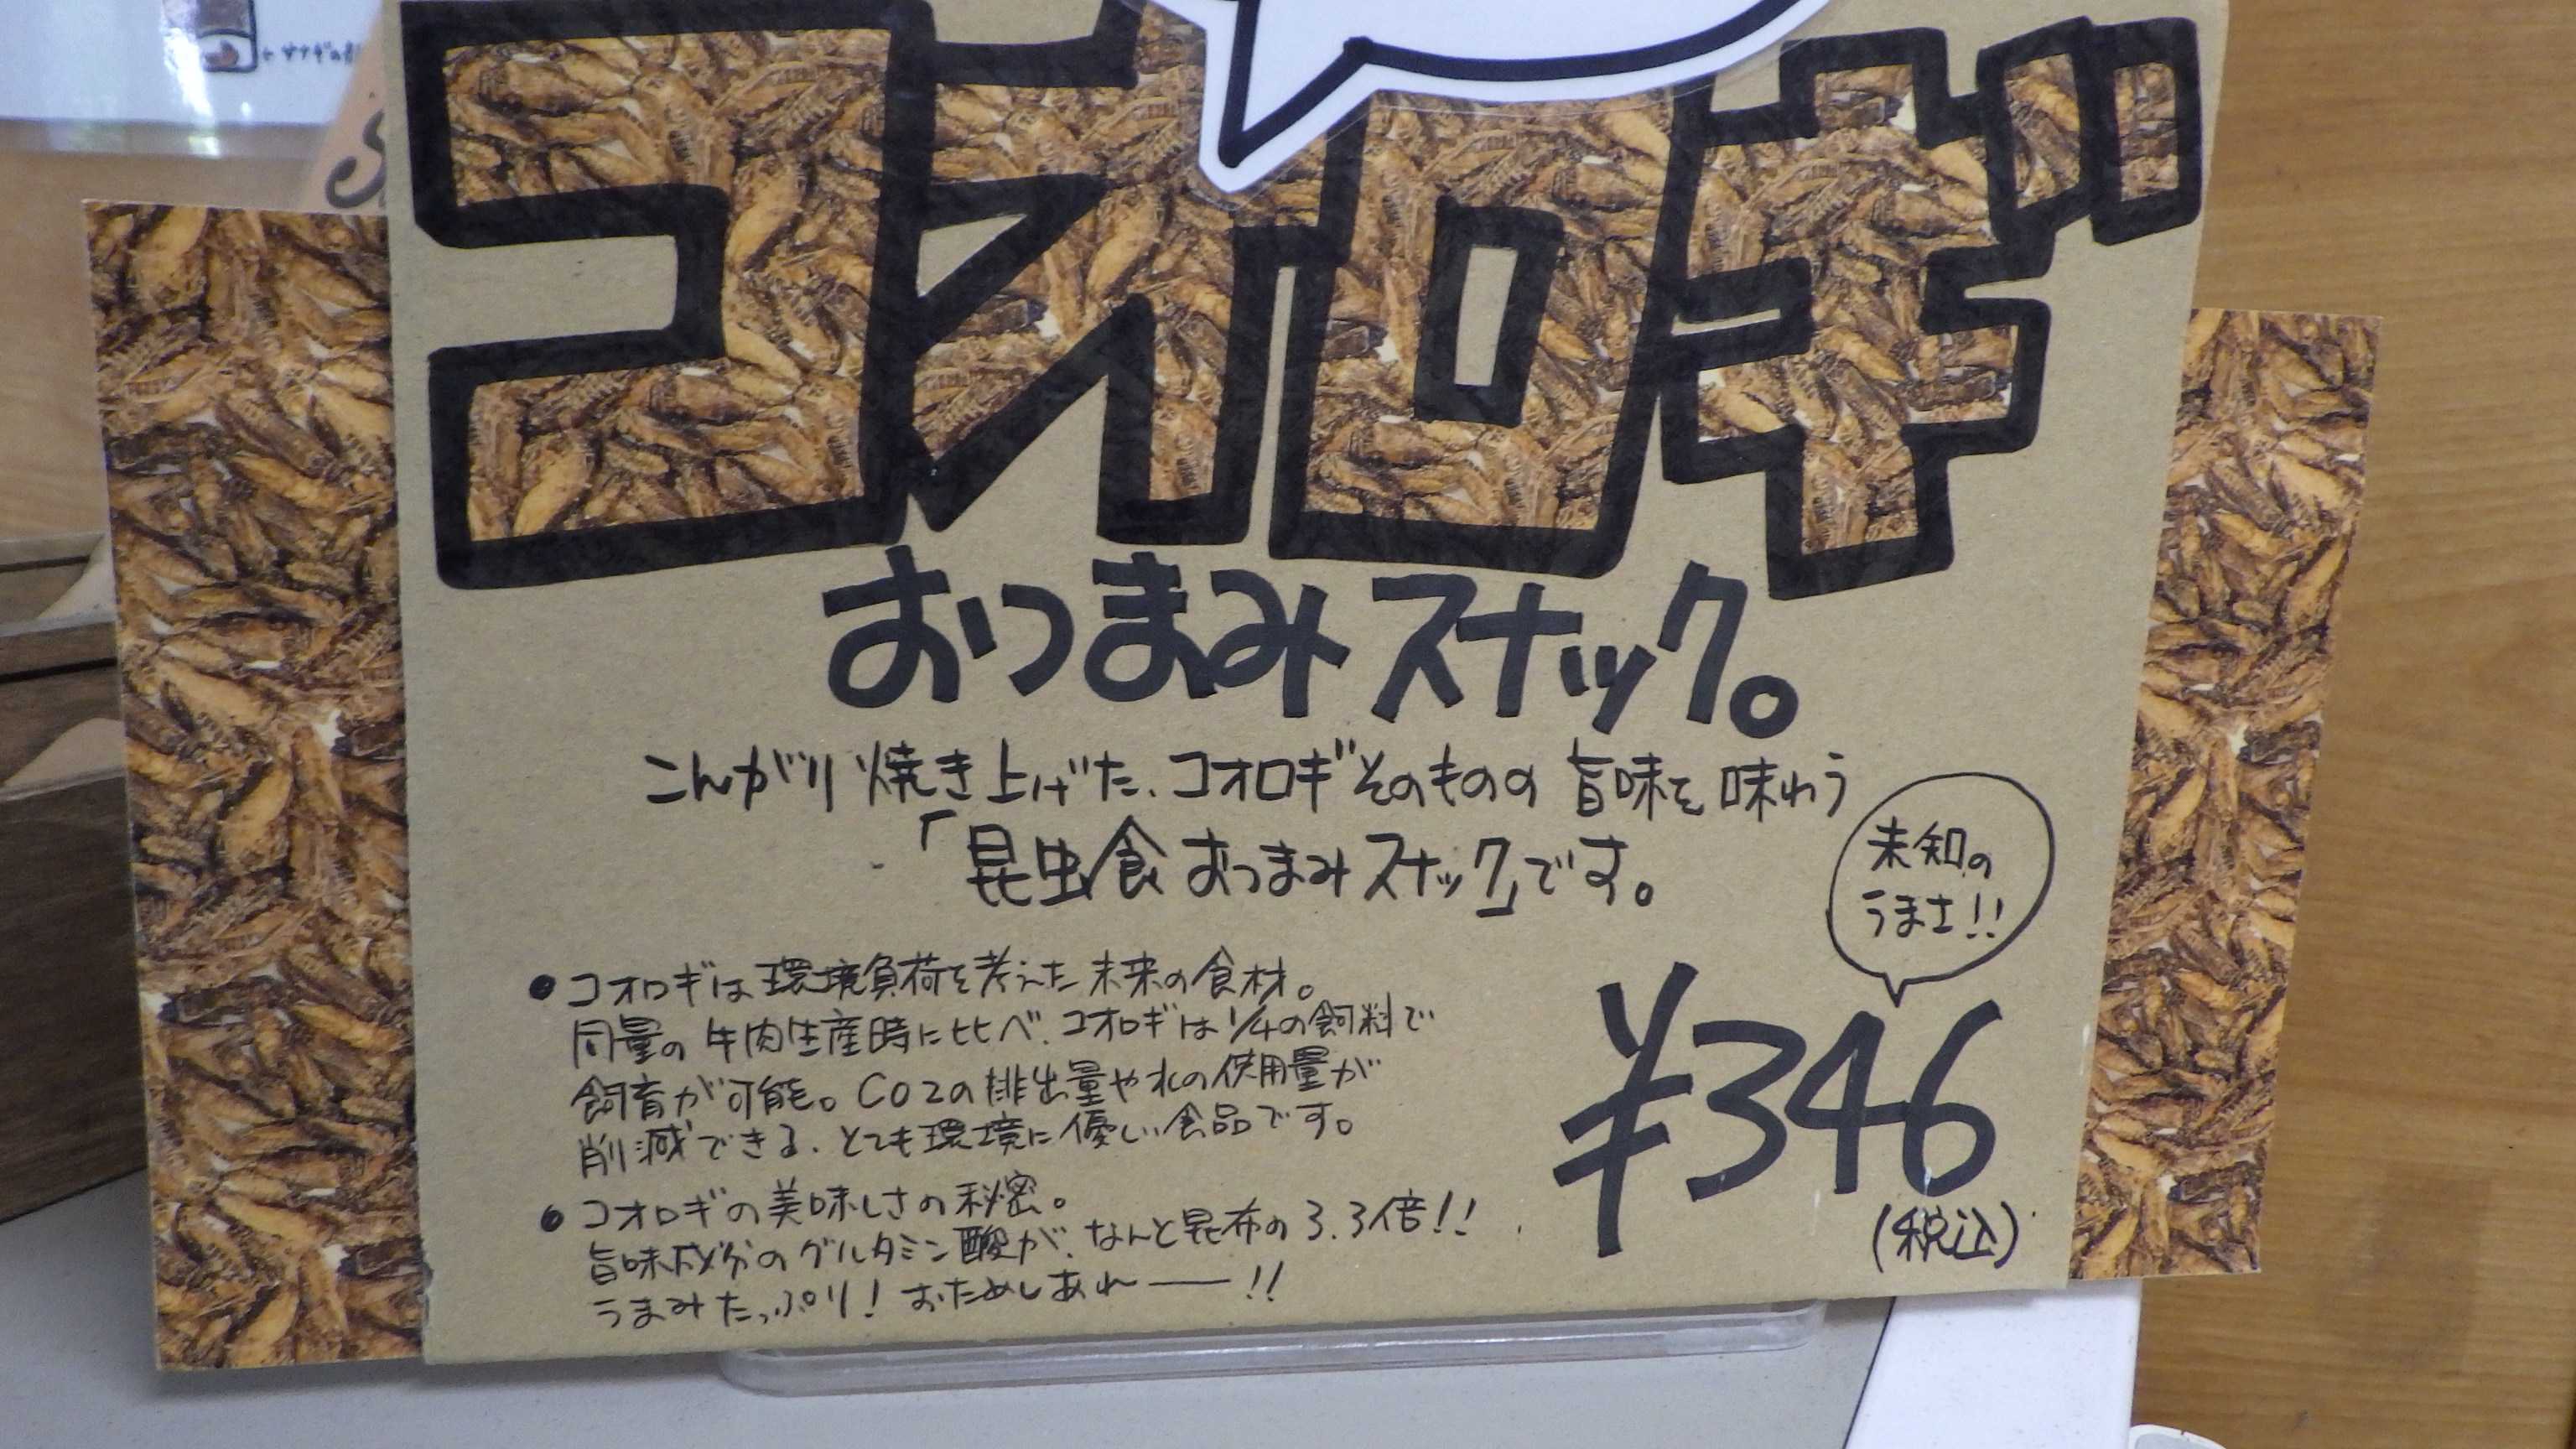 コオロギ
おつまみスナック。
こんがり焼き上げた、コオロギそのものの旨味を味わう
「昆虫食おつまみスナック」です。
未知の
うまさ!!
●コオロギは環境負荷を考えた未来の食材。
同量の牛肉生産時に比べ、コオロギは1/4の飼料で
飼育が可能。CO2の排出量や水の使用量が
削減できる、とても環境に優しい食品です。
●コオロギの美味しさの秘密。
旨味成分のグルタミン酸が、なんと昆布の3.3倍!!
うまみたっぷり!おためしあれ――!!
¥346
(税込)